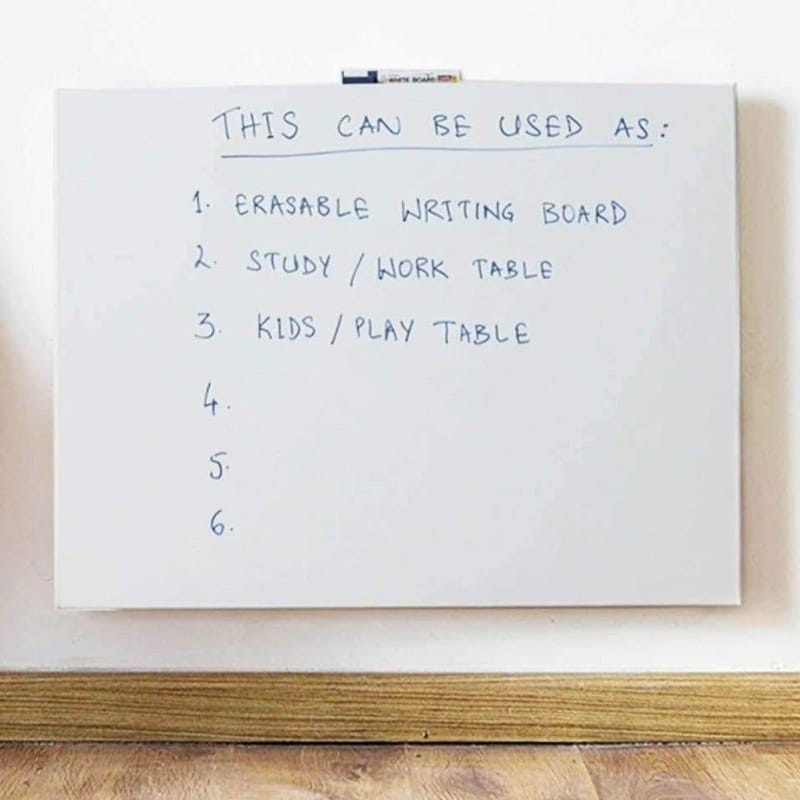 WHITE BOARD
THIS CAN BE USED AS:
1. ERASABLE WRITING BOARD
2. STUDY / WORK TABLE
3. KIDS / PLAY TABLE
4.
5.
6.